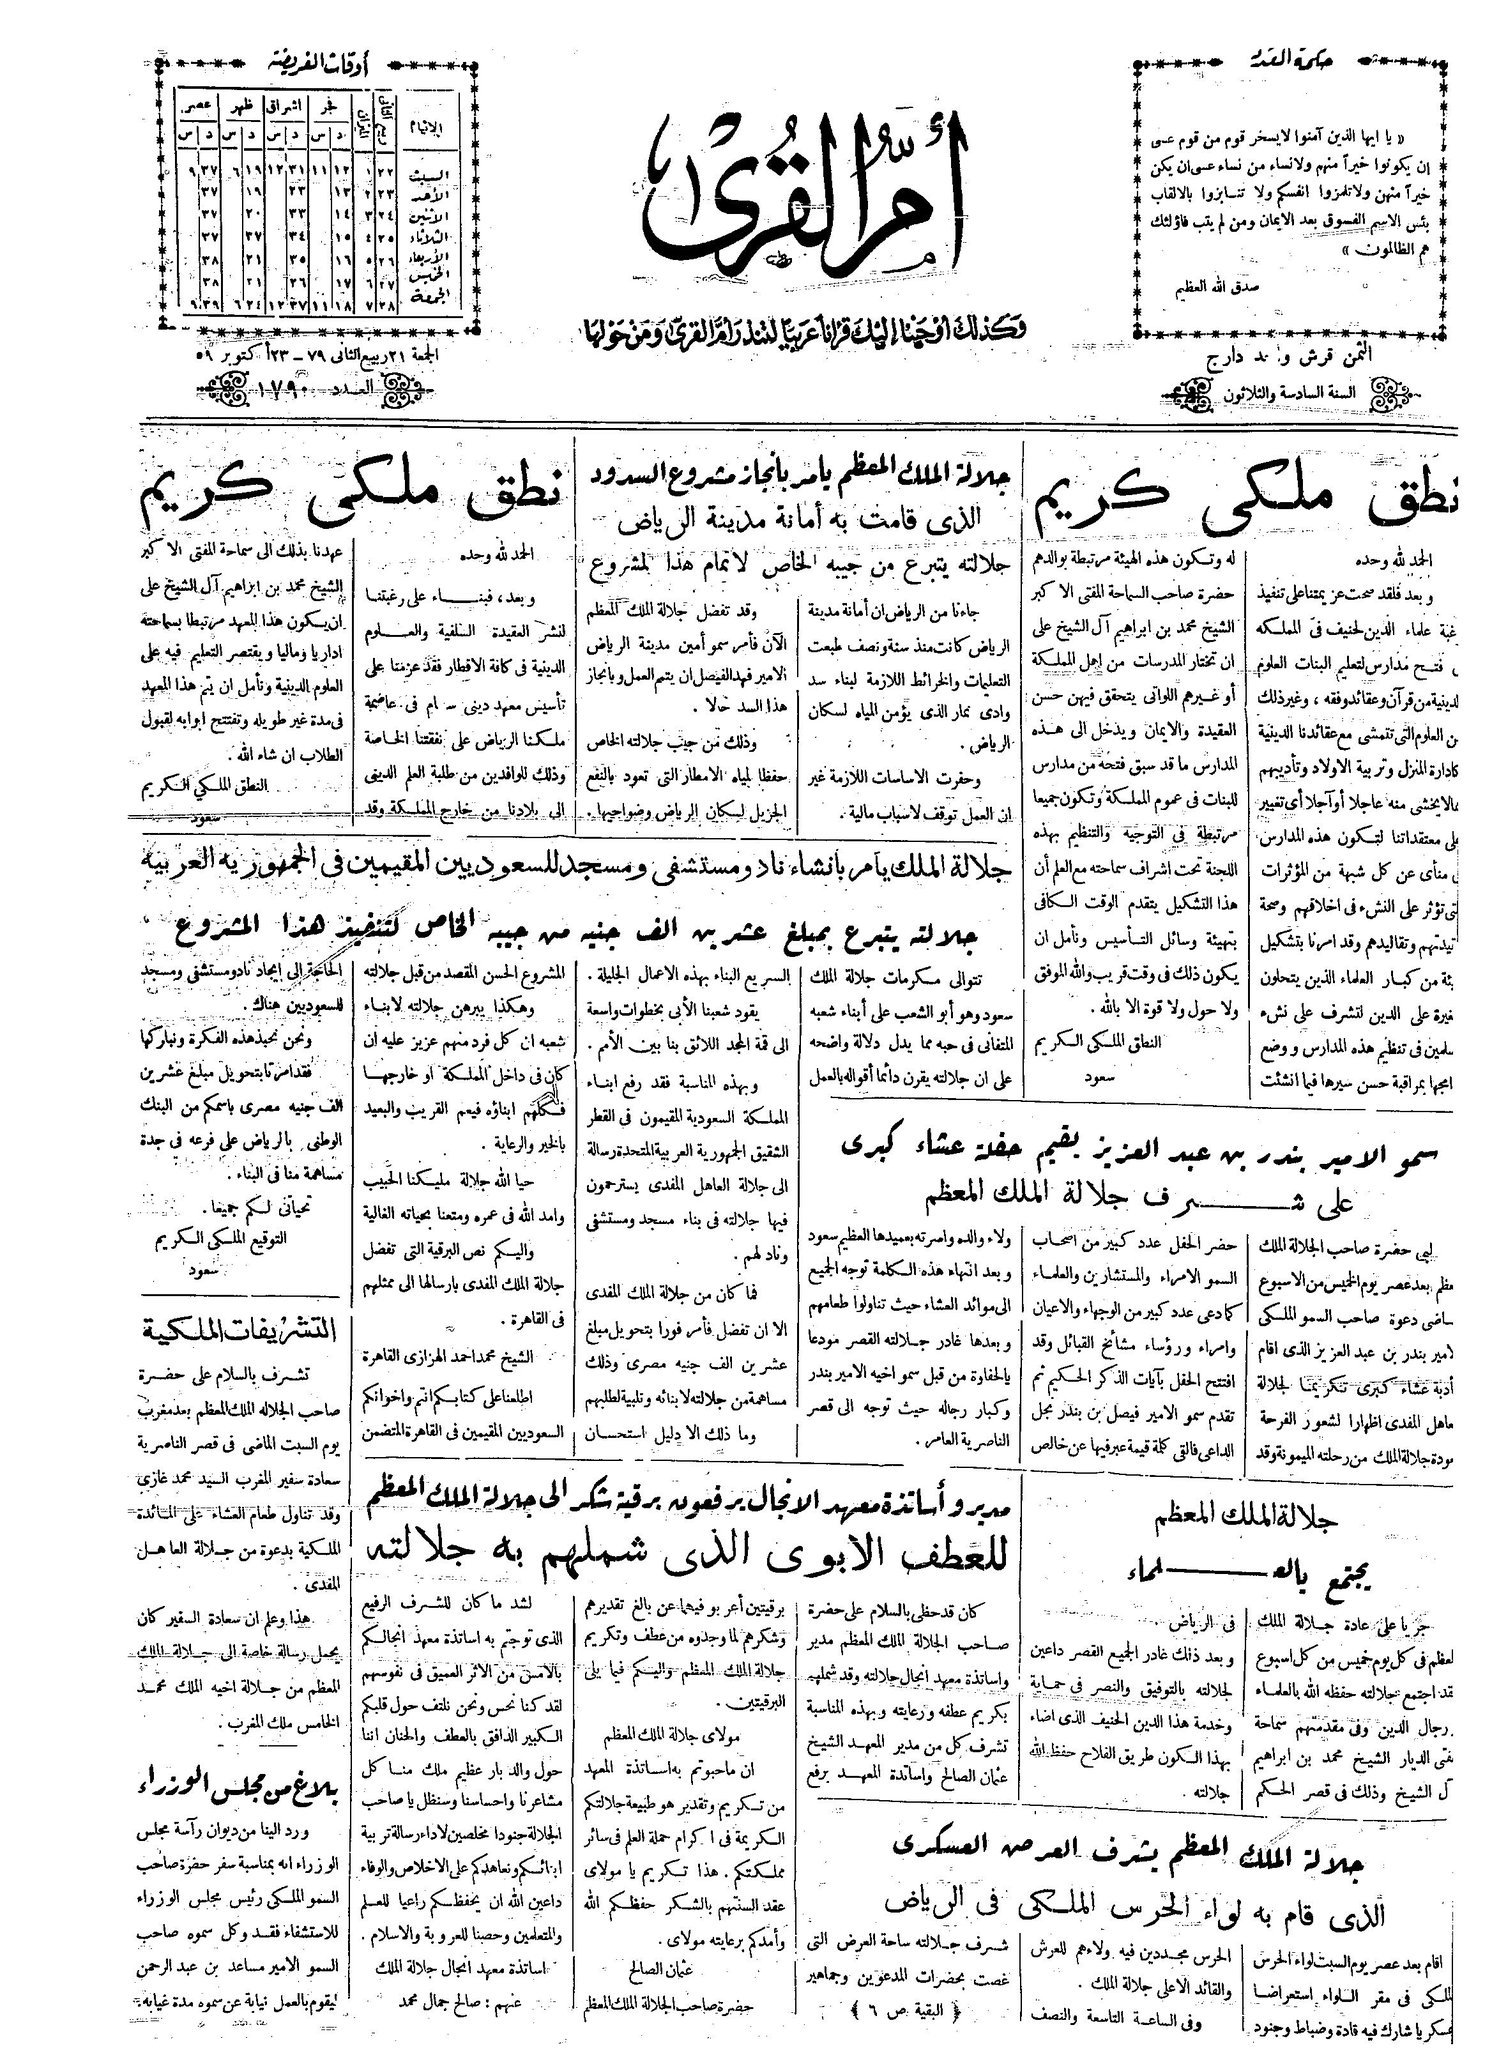 حكمة العدد
« يا ايها الذين آمنوا لا يسخر قوم من قوم عسى
ان يكونوا خيراً منهم ولا نساء من نساء عسى ان يكن
خيراً منهن ولا تلمزوا انفسكم ولا تنابزوا بالالقاب
بئس الاسم الفسوق بعد الايمان ومن لم يتب فاؤلئك
هم الظالمون »
صدق الله العظيم
الثمن قرش دارج
السنة السادسة والثلاثون
أم القرى
وكذلك أوحينا إليك قرآنا عربيا لتنذر أم القرى ومن حولها
أوقات الفريضة
الايام ربيع الثاني الميزان فجر اشراق ظهر عصر
د س د س د س د س
السبت ٢٢ ١ ١٢ ١١ ٣١ ١٢ ١٩ ٦ ٣٧ ٩
الأحد ٢٣ ٢ ١٣ ١٩ ٣٧
الاثنين ٢٤ ٣ ١٤ ٣٣ ٢٠ ٣٧
الثلاثاء ٢٥ ٤ ١٥ ٣٤ ٣٧
الأربعاء ٢٦ ٥ ١٦ ٣٥ ٢١ ٣٨
الخميس ٢٧ ٦ ١٧ ٢١ ٣٨
الجمعة ٢٨ ٧ ١٨ ١١ ٣٧ ١٢ ٢٤ ٦ ٣٩ ٩
الجمعة ٢١ ربيع الثانى ٧٩ - ٢٣ أكتوبر ٥٩
العدد ١٧٩٠
نطق ملكى كريم
الحمد لله وحده
وبعد فلقد صحت عزيمتنا على تنفيذ
علماء الدين الحنيف فى المملكه
فتح مدارس لتعليم البنات العلوم
من قرآن وعقائد وفقه ، وغير ذلك
العلوم التى تتمشى مع عقائدنا الدينية
كادارة المنزل وتربية الاولاد وتأديبهم
لا يخشى منه عاجلا أو آجلا أى تغيير
معتقداتنا لتكون هذه المدارس
منأى عن كل شبهة من المؤثرات
تؤثر على النشء فى اخلاقهم وصحة
وتقاليدهم وقد امرنا بتشكيل
من كبار العلماء الذين يتحلون
على الدين لتشرف على نشء
فى تنظيم هذه المدارس ووضع
بمراقبة حسن سيرها فيما انشئت
له وتكون هذه الهيئة مرتبطة بوالدهم
حضرة صاحب السماحة المفتى الاكبر
الشيخ محمد بن ابراهيم آل الشيخ على
ان تختار المدرسات من اهل المملكة
أو غيرهم اللواتى يتحقق فيهن حسن
العقيدة والايمان ويدخل الى هذه
المدارس ما قد سبق فتحه من مدارس
للبنات فى عموم المملكة وتكون جميعا
مرتبطة فى التوجيه والتنظيم بهذه
اللجنة تحت اشراف سماحته مع العلم أن
هذا التشكيل يتقدم الوقت الكافى
بتهيئة وسائل التأسيس ونأمل ان
يكون ذلك فى وقت قريب والله الموفق
ولا حول ولا قوة الا بالله .
النطق الملكى الكريم
سعود
جلالة الملك المعظم يامر بانجاز مشروع السدود
الذى قامت به أمانة مدينة الرياض
جلالته يتبرع من جيبه الخاص لاتمام هذا المشروع
جاءنا من الرياض ان أمانة مدينة
الرياض كانت منذ سنة ونصف طبعت
التعليمات والخرائط اللازمة لبناء سد
وادى نمار الذى يؤمن المياه لسكان
الرياض .
وحفرت الاساسات اللازمة غير
ان العمل توقف لاسباب مالية .
وقد تفضل جلالة الملك المعظم
الآن فأمر سمو أمين مدينة الرياض
الامير فهد الفيصل ان يتم العمل وبانجاز
هذا السد حالا .
وذلك من جيب جلالته الخاص
حفظا لمياه الامطار التى تعود بالنفع
الجزيل لسكان الرياض وضواحيها .
نطق ملكى كريم
الحمد لله وحده
وبعد ، فبناء على رغبتنا
لنشر العقيدة السلفية والعلوم
الدينية فى كافة الاقطار فقد عزمنا على
تأسيس معهد دينى سام فى عاصمة
ملكنا الرياض على نفقتنا الخاصة
وذلك للوافدين من طلبة العلم الدينى
الى بلادنا من خارج المملكة وقد
عهدنا بذلك الى سماحة المفتى الاكبر
الشيخ محمد بن ابراهيم آل الشيخ على
ان يكون هذا المعهد مرتبطا بسماحته
اداريا وماليا ويقتصر التعليم فيه على
العلوم الدينية ونأمل ان يتم هذا المعهد
فى مدة غير طويله وتفتتح ابوابه لقبول
الطلاب ان شاء الله .
النطق الملكي الكريم
سعود
جلالة الملك يامر بانشاء ناد ومستشفى ومسجد للسعوديين المقيمين فى الجمهورية العربية
جلالته يتبرع بمبلغ عشرين الف جنيه من جيبه الخاص لتنفيذ هذا المشروع
تتوالى مكرمات جلالة الملك
سعود وهو أبو الشعب على أبناء شعبه
المتفانى فى حبه مما يدل دلالة واضحه
على ان جلالته يقرن دائما أقواله بالعمل
السريع البناء بهذه الاعمال الجليلة .
يقود شعبنا الأبى بخطوات واسعة
الى قمة المجد اللائق بنا بين الأمم .
وبهذه المناسبة فقد رفع ابناء
المملكة السعودية المقيمون فى القطر
الشقيق الجمهورية العربية المتحدة رسالة
الى جلالة العاهل المفدى يسترحمون
فيها جلالته فى بناء مسجد ومستشفى
وناد لهم .
فما كان من جلالة الملك المفدى
الا ان تفضل فأمر فورا بتحويل مبلغ
عشرين الف جنيه مصرى وذلك
مساهمة من جلالته لابنائه وتلبية لطلبهم
وما ذلك الا دليل استحسان
المشروع الحسن المقصد من قبل جلالته
وهكذا يبرهن جلالته لابناء
شعبه ان كل فرد منهم عزيز عليه ان
كان فى داخل المملكة او خارجها
فكلهم ابناؤه فيعم القريب والبعيد
بالخير والرعاية .
حيا الله جلالة مليكنا الحبيب
وامد الله فى عمره ومتعنا بحياته الغالية
واليكم نص البرقية التى تفضل
جلالة الملك المفدى بارسالها الى ممثلهم
فى القاهرة .
الشيخ محمد احمد الهزازى القاهرة
اطلعنا على كتابكم انتم واخوانكم
السعوديين المقيمين فى القاهرة المتضمن
الحاجة الى إيجاد ناد ومستشفى ومسجد
للسعوديين هناك .
ونحن نحبذ هذه الفكرة ونباركها
فقد امرنا بتحويل مبلغ عشرين
الف جنيه مصرى باسمكم من البنك
الوطنى بالرياض على فرعه فى جدة
مساهمة منا فى البناء .
تحياتى لكم جميعا .
التوقيع الملكى الكريم
سعود
سمو الامير بندر بن عبد العزيز يقيم حفلة عشاء كبرى
على شرف جلالة الملك المعظم
لبى حضرة صاحب الجلالة الملك
بعد عصر يوم الخميس من الاسبوع
دعوة صاحب السمو الملكى
بندر بن عبد العزيز الذى اقام
عشاء كبرى تكريمنا لجلالة
المفدى اظهارا لشعور الفرحة
جلالة الملك من رحلته الميمونة وقد
حضر الحفل عدد كبير من اصحاب
السمو الامراء والمستشارين والعلماء
كما دعى عدد كبير من الوجهاء والاعيان
وامراء ورؤساء مشائخ القبائل وقد
افتتح الحفل بآيات الذكر الحكيم ثم
تقدم سمو الامير فيصل بن بندر نجل
الداعى فالقى كلمة قيمة عبر فيها عن خالص
ولاء والده واسرته بعميدها العظيم سعود
وبعد انتهاء هذه الكلمة توجه الجميع
الى موائد العشاء حيث تناولوا طعامهم
وبعدها غادر جلالته القصر مودعا
بالحفاوة من قبل سمو اخيه الامير بندر
وكبار رجاله حيث توجه الى قصر
الناصرية العامر .
التشريفات الملكية
تشرف بالسلام على حضرة
صاحب الجلاله الملك المعظم بعد مغرب
يوم السبت الماضى فى قصر الناصرية
سعادة سفير المغرب السيد محمد غازى
وقد تناول طعام العشاء على المائدة
الملكية بدعوة من جلالة العاهل
المفدى .
هذا وعلم ان سعادة السفير كان
يحمل رسالة خاصة الى جلالة الملك
المعظم من جلالة اخيه الملك محمد
الخامس ملك المغرب .
مدير وأساتذة معهد الانجال يرفعون برقية شكر الى جلالة الملك المعظم
للعطف الابوى الذى شملهم به جلالته
كان قد حظى بالسلام على حضرة
صاحب الجلالة الملك المعظم مدير
واساتذة معهد انجال جلالته وقد شملهم
بكريم عطفه ورعايته وبهذه المناسبة
تشرف كل من مدير المعهد الشيخ
عثمان الصالح واساتدة المعهد برفع
برقيتين أعربو فيهما عن بالغ تقديرهم
وشكرهم لما وجدوه من عطف وتكريم
جلالة الملك المعظم واليكم فيما يلى
البرقيتين .
مولاى جلالة الملك المعظم
ان ماحبوتم به اساتذة المعهد
من تكريم وتقدير هو طبيعة جلالتكم
الكريمة فى اكرام حملة العلم فى سائر
مملكتكم . هذا تكريم يا مولاى
عقد السنتهم بالشكر حفظكم الله
وأمدكم برعايته مولاى .
عثمان الصالح
حضرة صاحب الجلالة الملك المعظم
لشد ما كان للشرف الرفيع
الذى توجتم به اساتذة معهد انجالكم
بالامس من الاثر العميق فى نفوسهم
لقد كنا نحس ونحن نلتف حول قلبكم
الكبير الدافق بالعطف والحنان اننا
حول والد بار عظيم ملك منا كل
مشاعرنا واحساسنا وسنظل يا صاحب
الجلالة جنودا مخلصين لاداء رسالة تربية
ابنائكم ونعاهدكم على الاخلاص والوفاء
داعين الله ان يحفظكم راعيا للعلم
والمتعلمين وحصنا للعروبة والاسلام .
اساتذة معهد انجال جلالة الملك
عنهم : صالح جمال محمد
جلالة الملك المعظم
يجتمع بالعلماء
جريا على عادة جلالة الملك
فى كل يوم خميس من كل اسبوع
اجتمع جلالته حفظه الله بالعلماء
رجال الدين وفى مقدمتهم سماحة
الديار الشيخ محمد بن ابراهيم
الشيخ وذلك فى قصر الحكم
فى الرياض .
وبعد ذلك غادر الجميع القصر داعين
لجلالته بالتوفيق والنصر فى حماية
وخدمة هذا الدين الحنيف الذى اضاء
بهذا الكون طريق الفلاح حفظ الله
جلالته .
جلالة الملك المعظم يشرف العرض العسكرى
الذى قام به لواء الحرس الملكى فى الرياض
اقام بعد عصر يوم السبت لواء الحرس
فى مقر اللواء استعراضا
شارك فيه قادة وضباط وجنود
الحرس مجددين فيه ولاءهم للعرش
والقائد الاعلى جلالة الملك .
وفى الساعة التاسعة والنصف
شرف جلالته ساحة العرض التى
غصت بحضرات المدعوين وجماهير
﴿ البقية ص ٦ ﴾
بلاغ من مجلس الوزراء
ورد الينا من ديوان رآسة مجلس
الوزراء انه بمناسبة سفر حضرة صاحب
السمو الملكى رئيس مجلس الوزراء
للاستشفاء فقد وكل سموه صاحب
السمو الامير مساعد بن عبد الرحمن
ليقوم بالعمل نيابة عن سموه مدة غيابه .